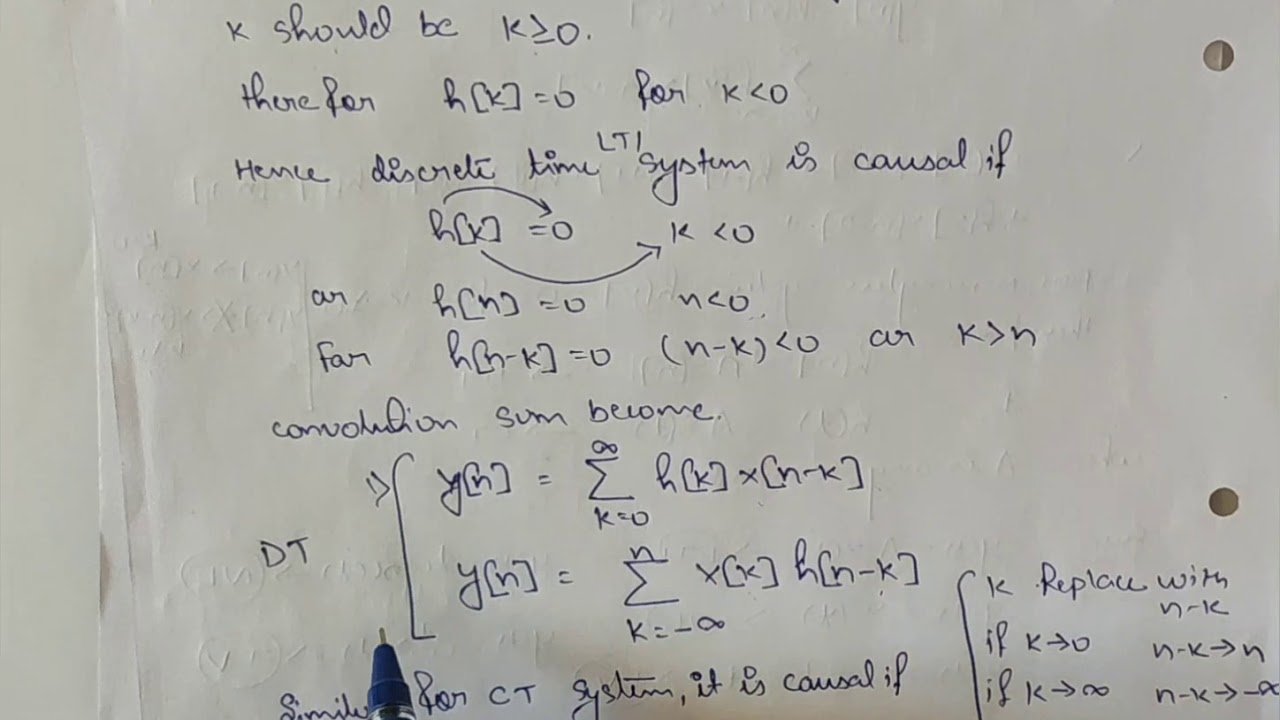 K should be K≥0.
therefor h[k]=0 for k<0
Hence discrete time LTI system is causal if
h[k] =0 k <0
or h[n] =0 n<0
For h[n-k]=0 (n-k)<0 or k>n
convolution sum become.
1) y[n] = ∑_{k=0}^{∞} h[k] x[n-k]
DT
y[n] = ∑_{k=-∞}^{n} x[k] h[n-k]
k Replace with
n-k
if k→0 n-k→n
if k→∞ n-k→-∞
for CT system, it is causal if